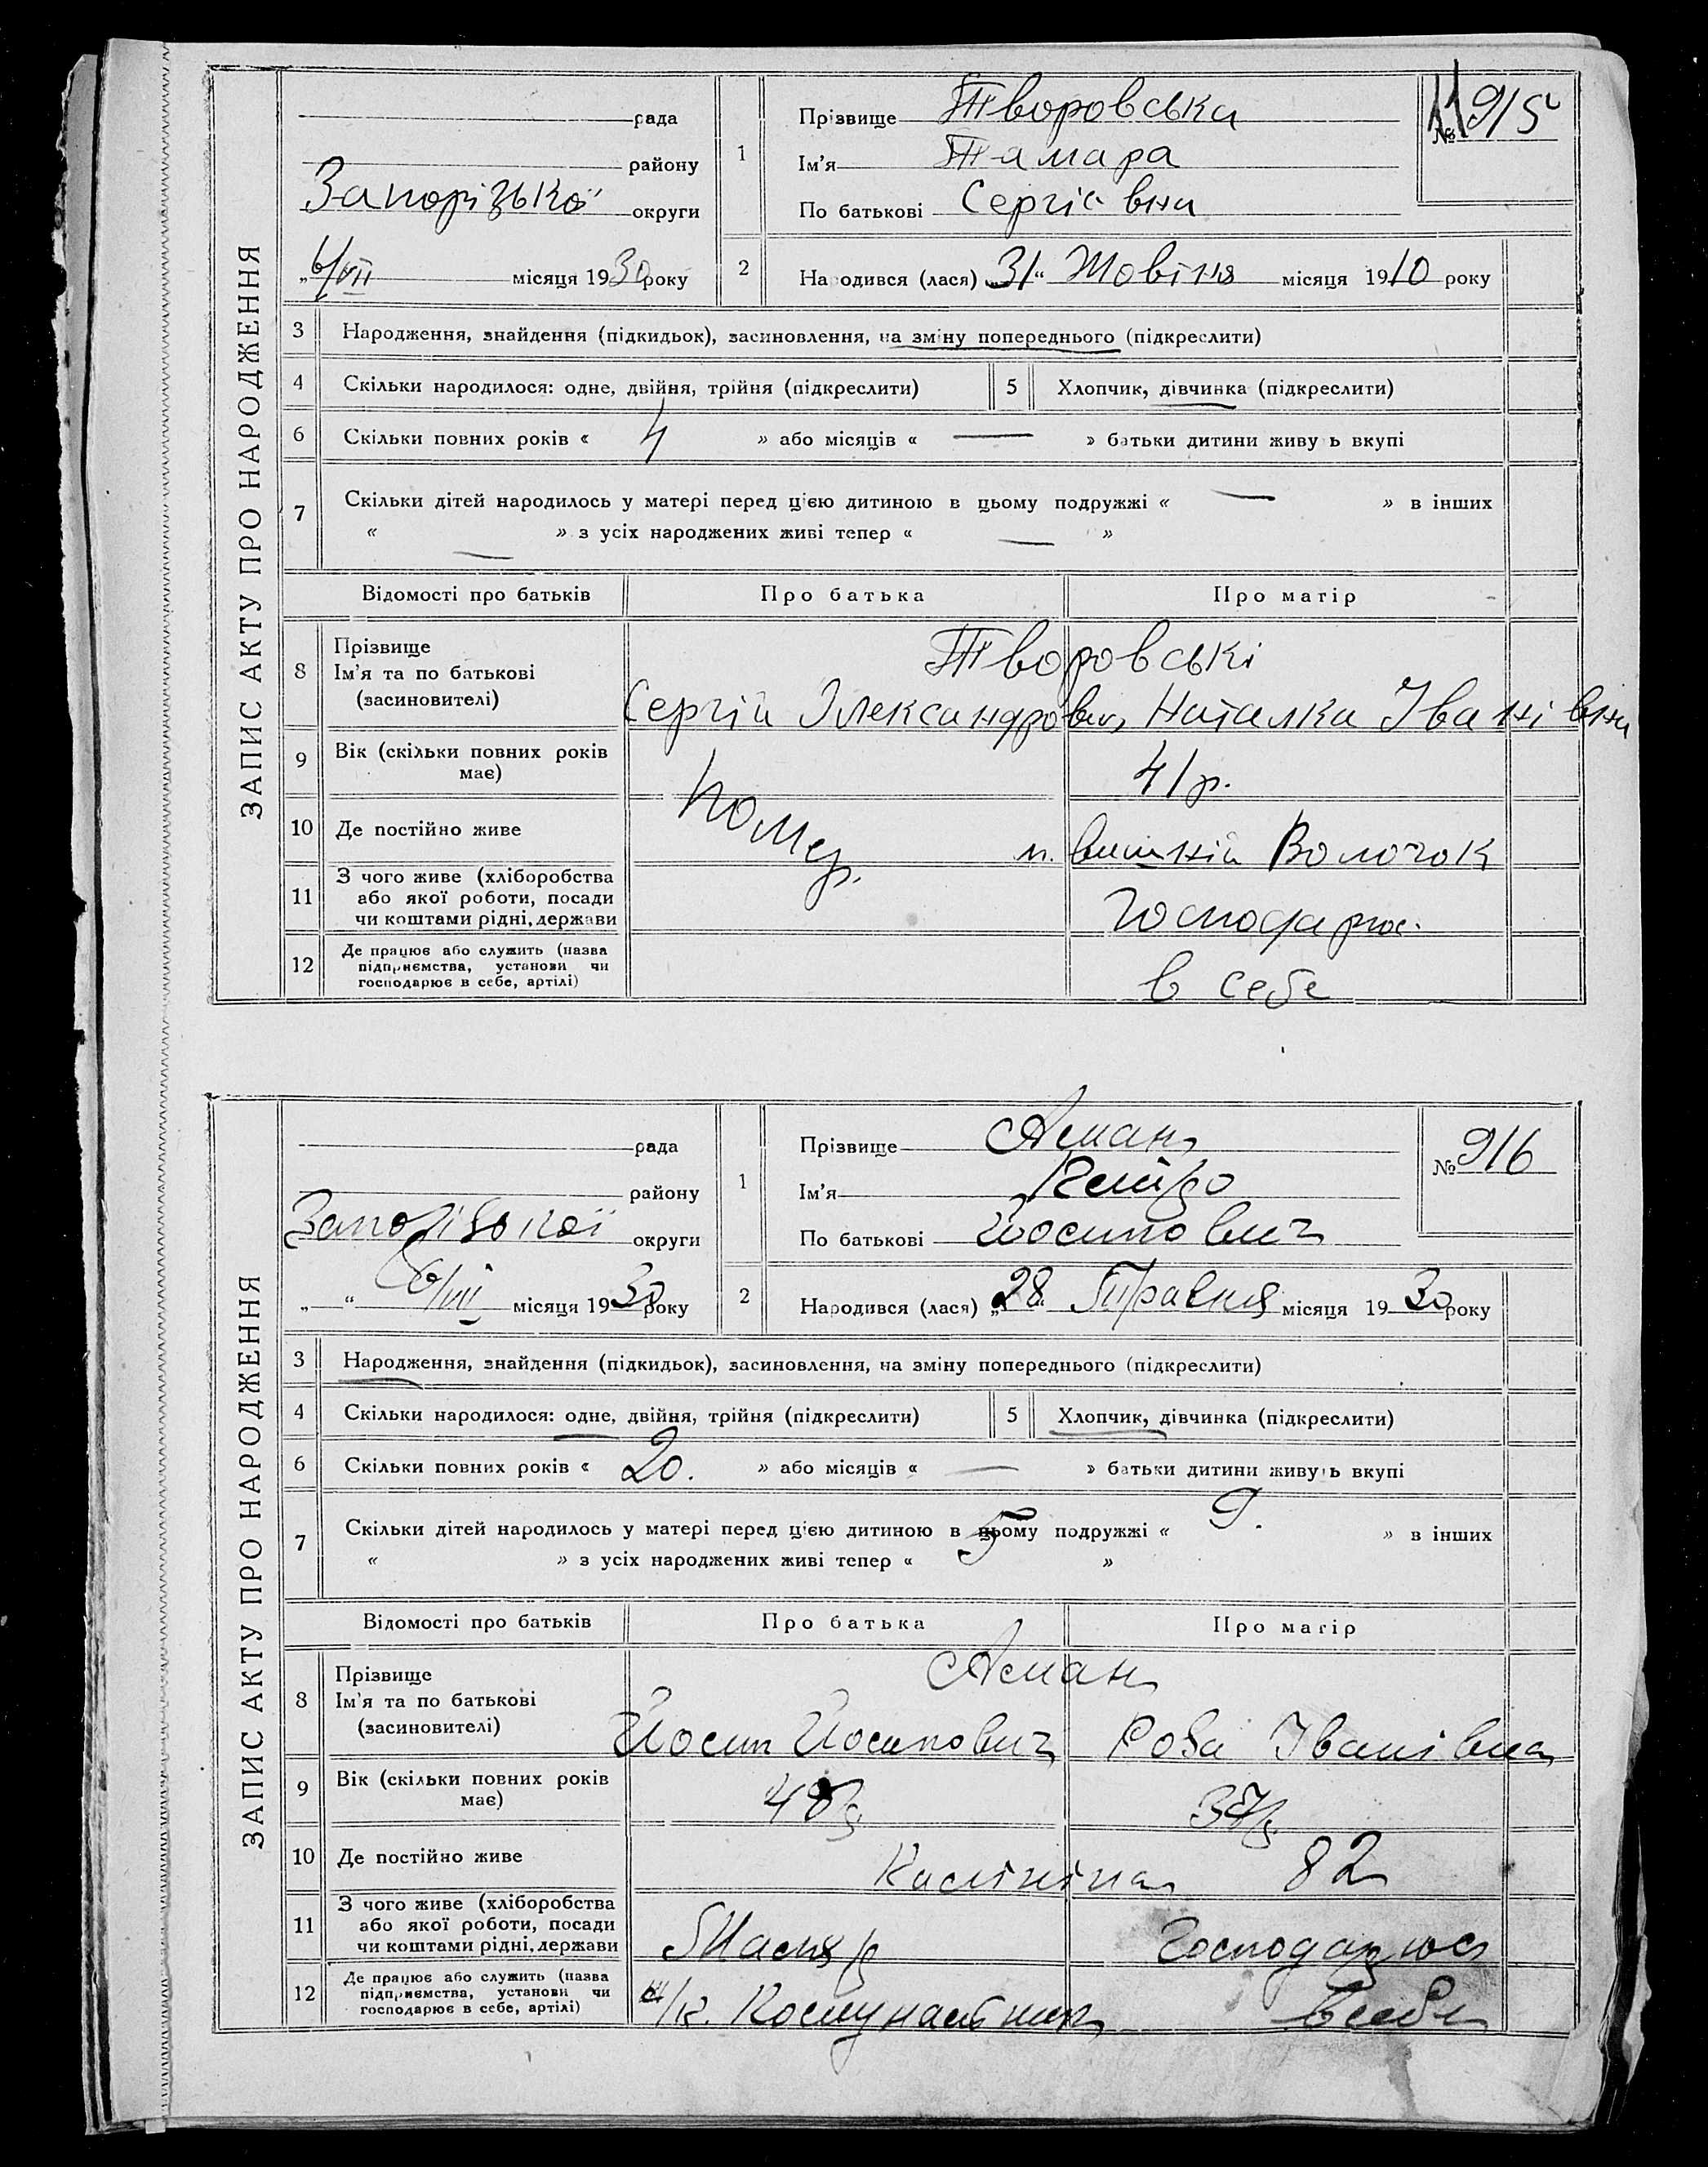 ЗАПИС АКТУ ПРО НАРОДЖЕННЯ
рада
району
Запорізької округи
„6/VII місяця 1930 року
1
Прізвище Творовська
Ім’я Тамара
По батькові Сергіівни
№ 915
2
Народився (лася) „31“ Жовтня місяця 1910 року
3 Народження, знайдення (підкидьок), засиновлення, на зміну попереднього (підкреслити)
4 Скільки народилося: одне, двійня, трійня (підкреслити) 5 Хлопчик, дівчинка (підкреслити)
6 Скільки повних років « 4 » або місяців « — » батьки дитини живуть вкупі
7 Скільки дітей народилось у матері перед цією дитиною в цьому подружжі « — » в інших
« — » з усіх народжених живі тепер « — »
Відомості про батьків Про батька Про матір
8 Прізвище
Ім’я та по батькові
(засиновителі)
Творовські
Сергій Олександрович, Наталка Іванівна
9 Вік (скільки повних років має)
Помер. 41 р.
10 Де постійно живе
м. Вишній Волочок
11 З чого живе (хліборобства
або якої роботи, посади
чи коштами рідні, держави
Господарює.
12 Де працює або служить (назва
підприємства, установи чи
господарює в себе, артілі)
в себе
ЗАПИС АКТУ ПРО НАРОДЖЕННЯ
рада
району
Запорізької округи
„ “ 6/VII місяця 1930 року
1
Прізвище Асман
Ім’я
По батькові Йосипович
№ 916
2
Народився (лася) „28“ Травня місяця 1930 року
3 Народження, знайдення (підкидьок), засиновлення, на зміну попереднього (підкреслити)
4 Скільки народилося: одне, двійня, трійня (підкреслити) 5 Хлопчик, дівчинка (підкреслити)
6 Скільки повних років « 20. » або місяців « — » батьки дитини живуть вкупі
7 Скільки дітей народилось у матері перед цією дитиною в цьому подружжі « 9. » в інших
« » з усіх народжених живі тепер « 5 »
Відомості про батьків Про батька Про матір
8 Прізвище
Ім’я та по батькові
(засиновителі)
Асман
Йосип Йосипович Роза Іванівна
9 Вік (скільки повних років має)
48 р. 37 р.
10 Де постійно живе
Калініна 82
11 З чого живе (хліборобства
або якої роботи, посади
чи коштами рідні, держави
Маляр Господарює
12 Де працює або служить (назва
підприємства, установи чи
господарює в себе, артілі)
Комунальник в себе